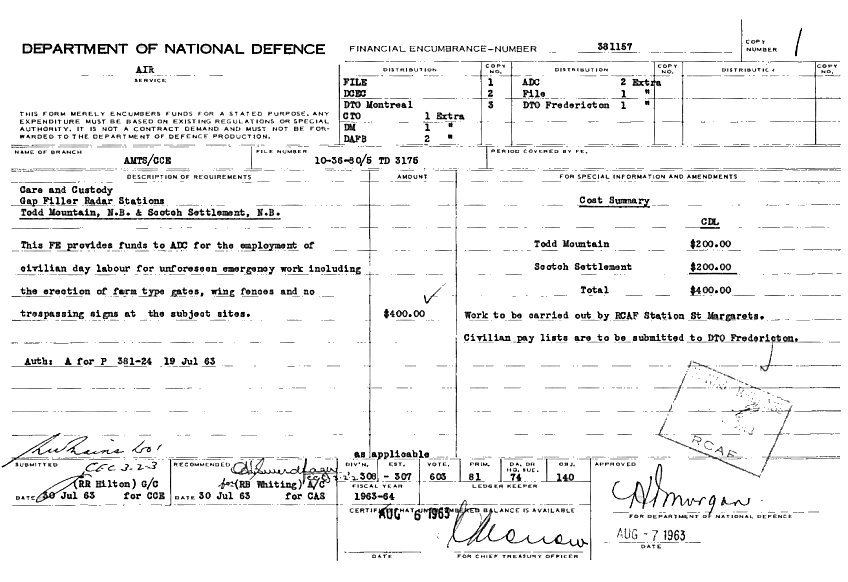 COPY NUMBER 1
DEPARTMENT OF NATIONAL DEFENCE FINANCIAL ENCUMBRANCE-NUMBER 381157
AIR
SERVICE
DISTRIBUTION COPY NO. DISTRIBUTION COPY NO. DISTRIBUTION COPY NO.
FILE 1 ADC 2 Extra
DCEC 2 File 1 "
DTO Montreal 3 DTO Fredericton 1 "
CTO 1 Extra
DM 1 "
DAFB 2 "
THIS FORM MERELY ENCUMBERS FUNDS FOR A STATED PURPOSE. ANY
EXPENDITURE MUST BE BASED ON EXISTING REGULATIONS OR SPECIAL
AUTHORITY. IT IS NOT A CONTRACT DEMAND AND MUST NOT BE FOR-
WARDED TO THE DEPARTMENT OF DEFENCE PRODUCTION.
NAME OF BRANCH AMTS/CCE FILE NUMBER 10-36-80/5 TD 3175 PERIOD COVERED BY FE.
DESCRIPTION OF REQUIREMENTS AMOUNT FOR SPECIAL INFORMATION AND AMENDMENTS
Care and Custody
Gap Filler Radar Stations
Todd Mountain, N.B. & Scotch Settlement, N.B.
This FE provides funds to ADC for the employment of
civilian day labour for unforeseen emergency work including
the erection of farm type gates, wing fences and no
trespassing signs at the subject sites. $400.00
Auth: A for P 381-24 19 Jul 63
Cost Summary
CDL
Todd Mountain $200.00
Scotch Settlement $200.00
Total $400.00
Work to be carried out by RCAF Station St Margarets.
Civilian pay lists are to be submitted to DTO Fredericton.
RCAF
as applicable
SUBMITTED CEC 3-2-3
(RR Hilton) G/C
DATE 30 Jul 63 for CCE
RECOMMENDED
for (RB Whiting) A/C
DATE 30 Jul 63 for CAS
DIV'N. EST. VOTE. PRIM. DA. OR HQ. SUE. OBJ.
308 - 307 603 81 74 140
FISCAL YEAR LEDGER KEEPER
1963-64
CERTIFIED THAT UNENCUMBERED BALANCE IS AVAILABLE
AUG 6 1963
DATE FOR CHIEF TREASURY OFFICER
APPROVED
Morgan
FOR DEPARTMENT OF NATIONAL DEFENCE
AUG - 7 1963
DATE